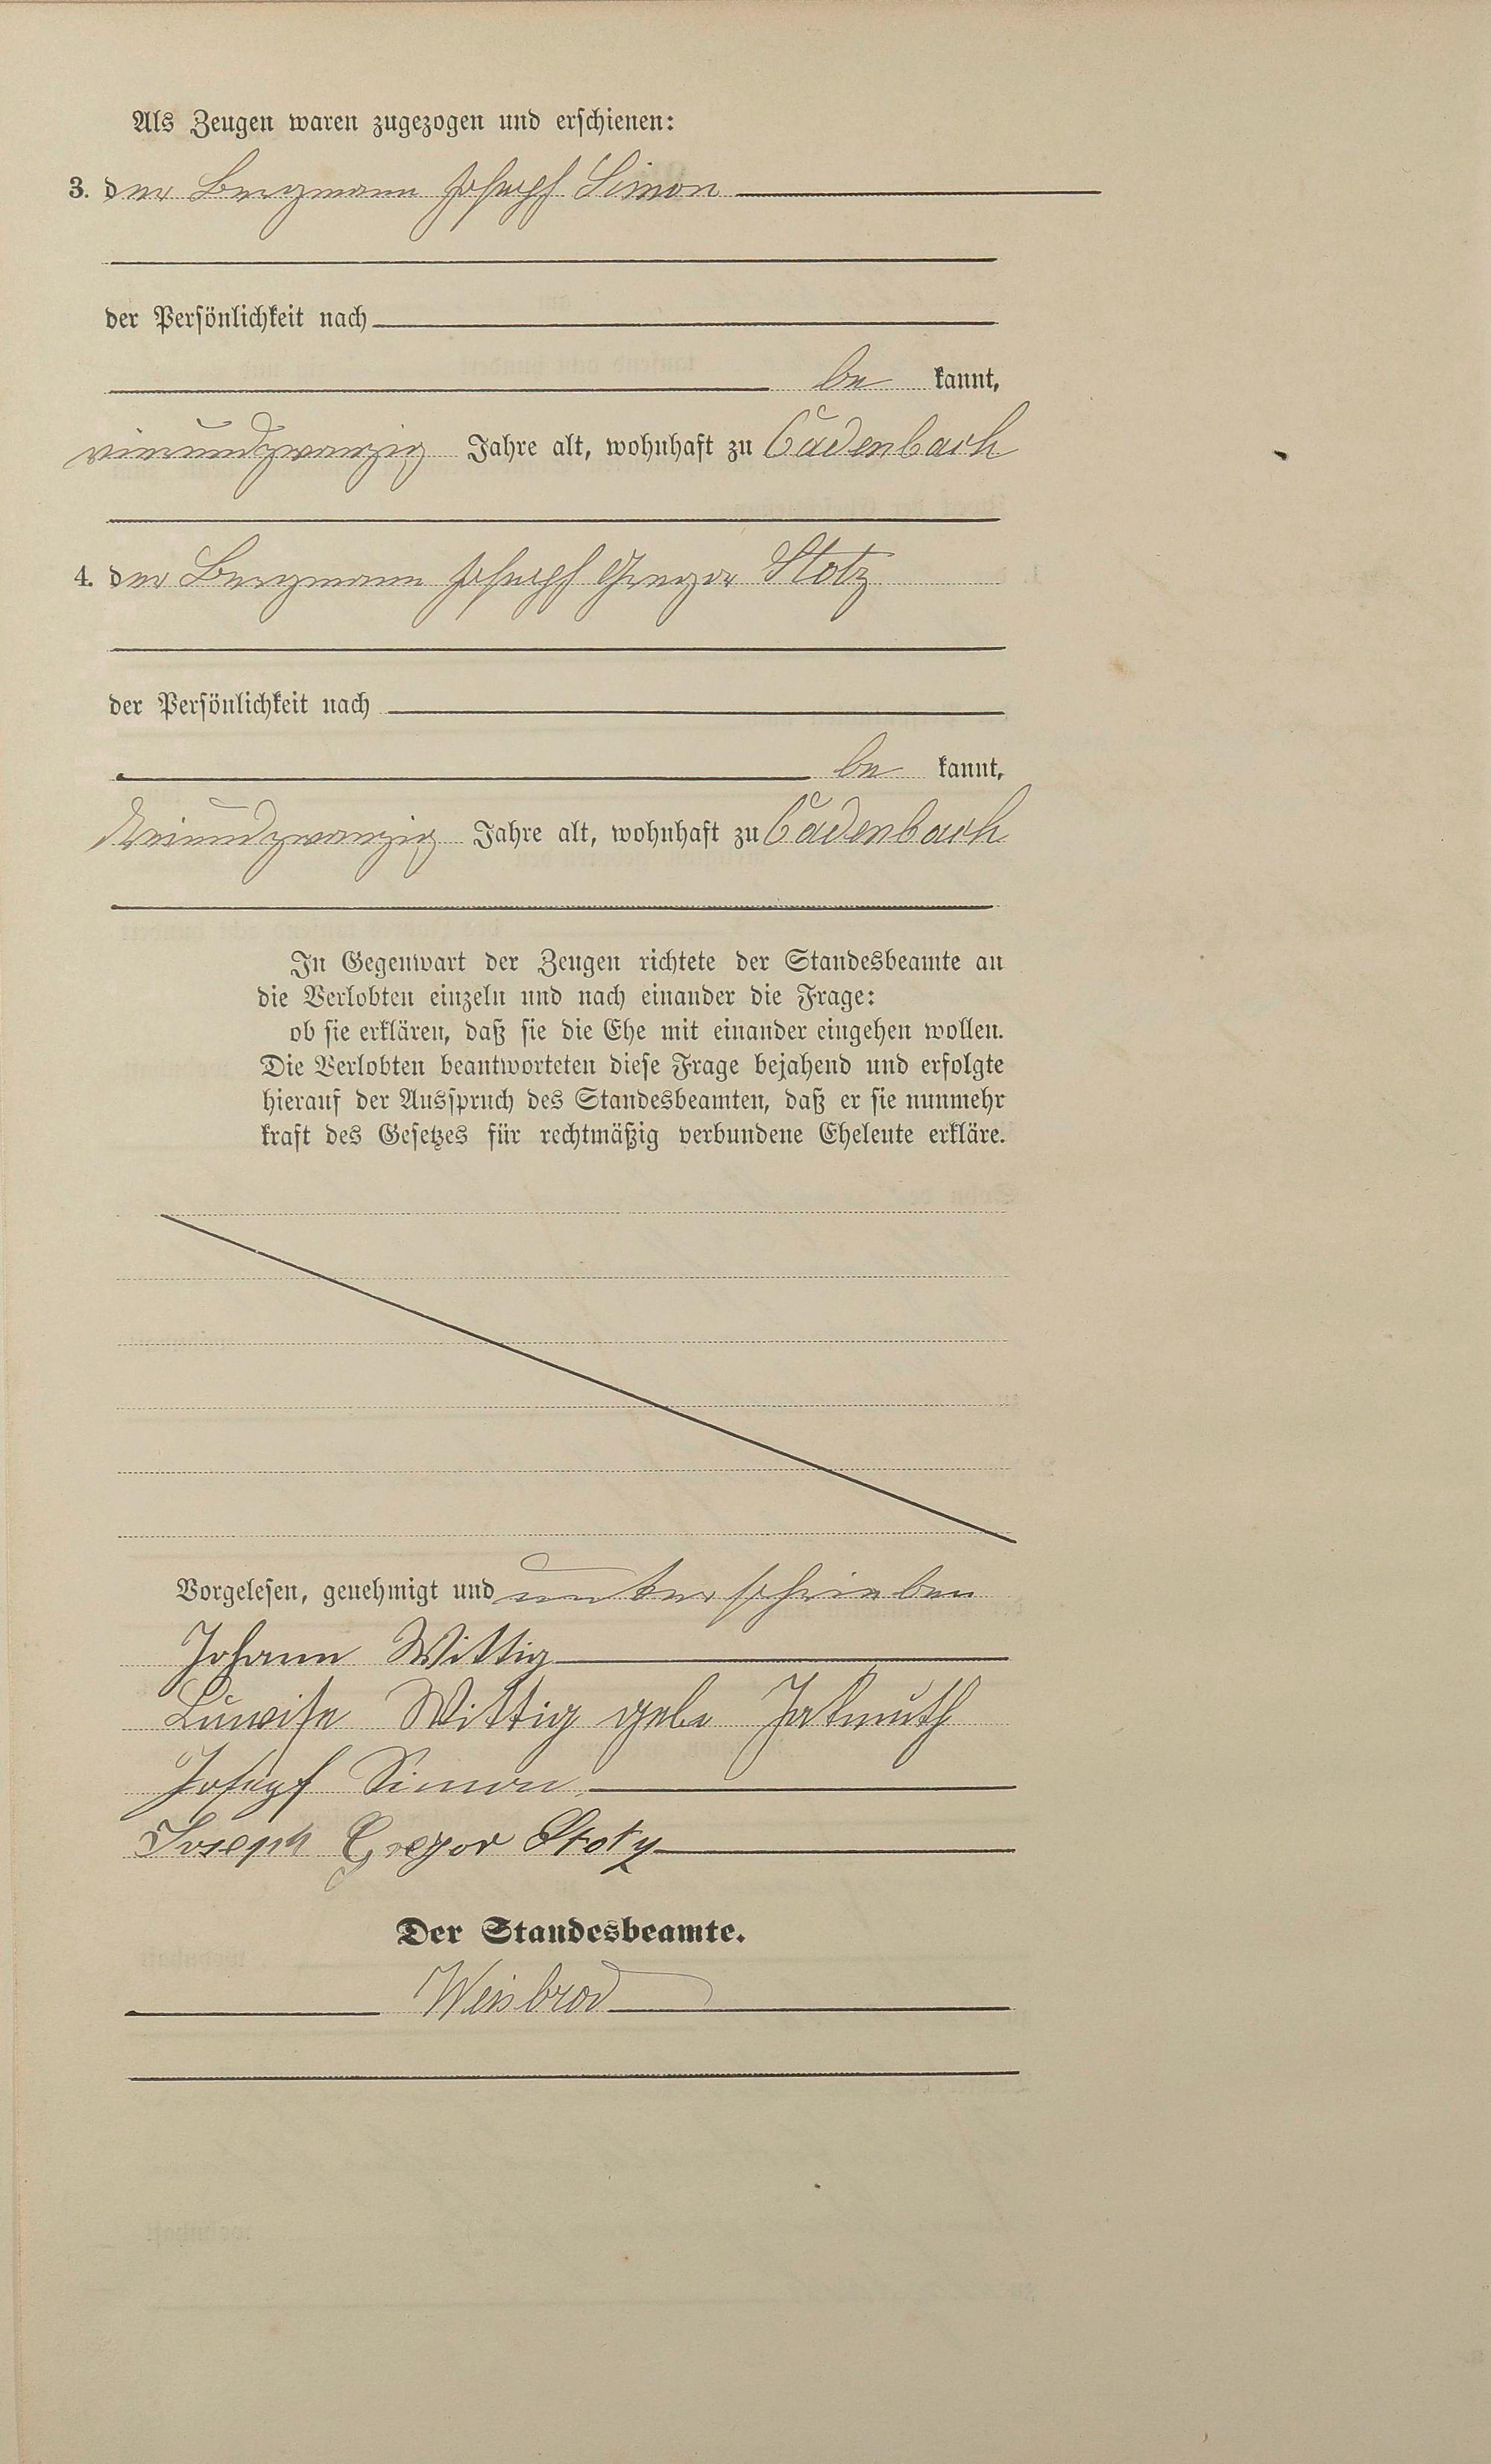 Als Zeugen waren zugezogen und erschienen:
3. der Bergmann Joseph Simon
der Persönlichkeit nach
be kannt,
vierundzwanzig Jahre alt, wohnhaft zu Cadenbach
4. der Bergmann Joseph Gregor Stotz
der Persönlichkeit nach
be kannt,
dreiundzwanzig Jahre alt, wohnhaft zu Cadenbach
In Gegenwart der Zeugen richtete der Standesbeamte an
die Verlobten einzeln und nach einander die Frage:
ob sie erklären, daß sie die Ehe mit einander eingehen wollen.
Die Verlobten beantworteten diese Frage bejahend und erfolgte
hierauf der Ausspruch des Standesbeamten, daß er sie nunmehr
kraft des Gesetzes für rechtmäßig verbundene Eheleute erkläre.
Vorgelesen, genehmigt und unterschrieben
Johann Wittig
Luwise Wittig gebe
Josepf Simon
Joseph Gregor Stotz
Der Standesbeamte.
Weisbrod